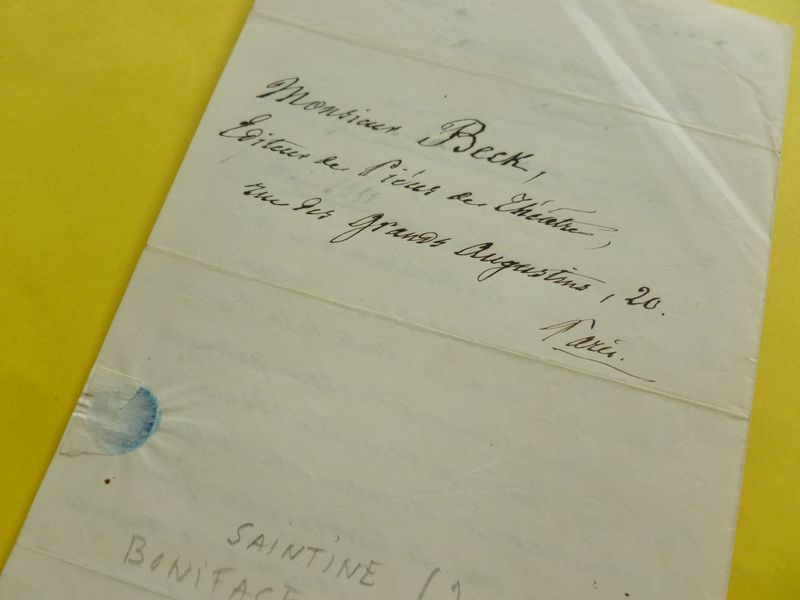 Monsieur Beck,
Editeur de Pièces de Théâtre,
rue des Grands Augustins, 20.
Paris.
SAINTINE
BONIFACE